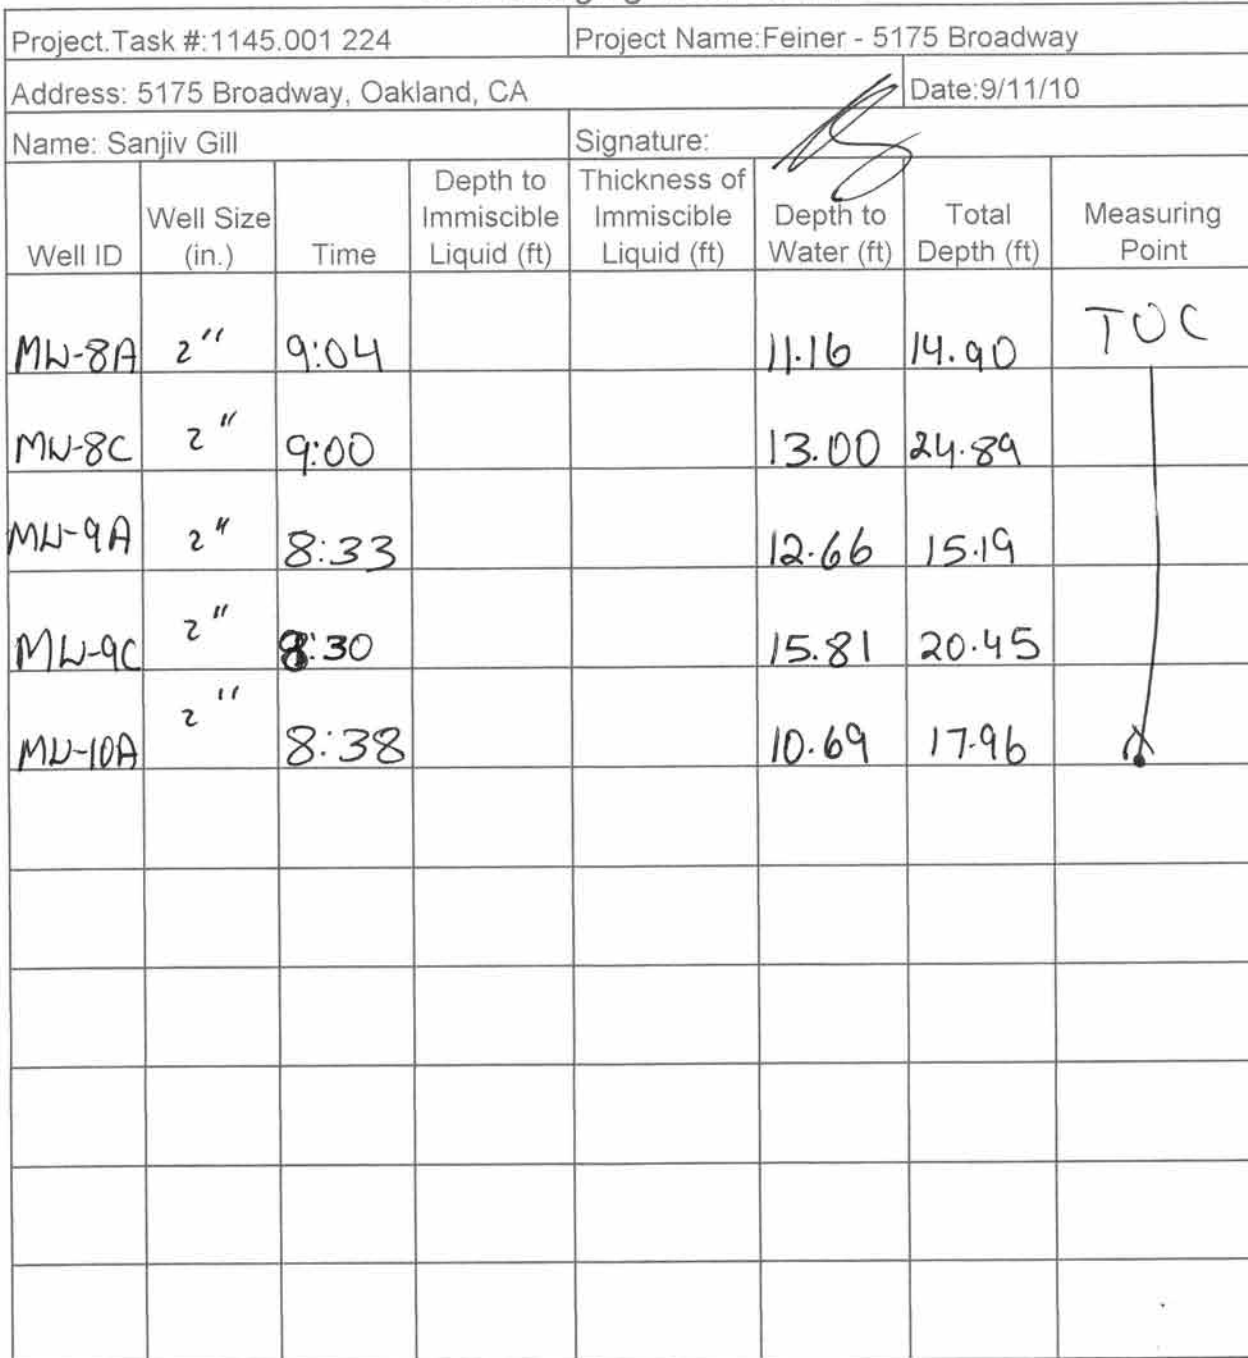 Project.Task #:1145.001 224 Project Name:Feiner - 5175 Broadway
Address: 5175 Broadway, Oakland, CA Date:9/11/10
Name: Sanjiv Gill Signature:
Well ID Well Size (in.) Time Depth to Immiscible Liquid (ft) Thickness of Immiscible Liquid (ft) Depth to Water (ft) Total Depth (ft) Measuring Point
MW-8A 2" 9:04 11.16 14.90 TOC
MW-8C 2" 9:00 13.00 24.89
MW-9A 2" 8:33 12.66 15.19
MW-9C 2" 8:30 15.81 20.45
MW-10A 2" 8:38 10.69 17.96